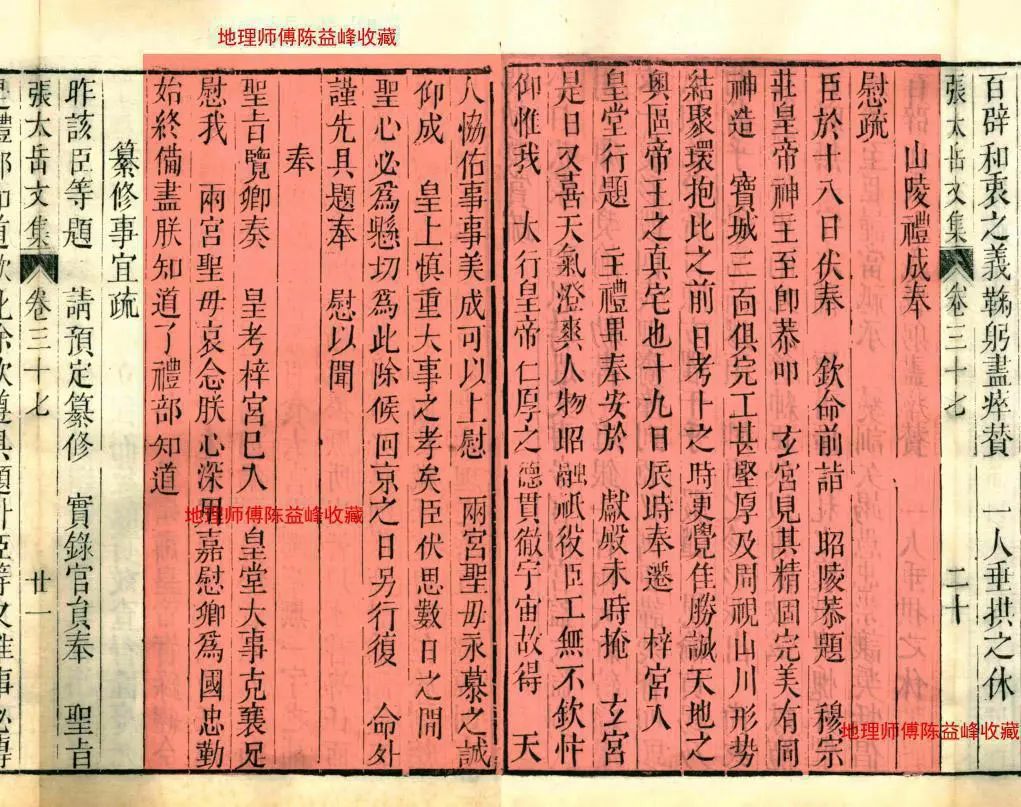 地理师傅陈益峰收藏
百辟和衷之義鞠躬盡瘁贊 一人垂拱之休
張太岳文集 卷三十七 二十
山陵禮成奉
慰疏
臣於十八日伏奉 欽命前詣 昭陵恭題 穆宗
莊皇帝神主至卽恭叩 玄宮見其精固完美有同
神造 寶城三面俱完工甚堅厚及周視山川形勢
結聚環抱比之前日考卜之時更覺佳勝誠天地之
奧區帝王之真宅也十九日辰時奉遷 梓宮入
皇堂行題 主禮畢奉安於 獻殿未時掩 玄宮
是日又喜天氣澄爽人物昭融祇役臣工無不欽忭
仰惟我 大行皇帝仁厚之德貫徹宇宙故得 天
人協佑事事美成可以上慰 兩宮聖母永慕之誠
仰成 皇上慎重大事之孝矣臣伏思數日之間
聖心必為懸切為此除候回京之日另行復 命外
謹先具題奉 慰以聞
奉
聖旨覽卿奏 皇考梓宮已入 皇堂大事克襄足
慰我 兩宮聖母哀念朕心深用嘉慰卿為國忠勤
始終備盡朕知道了禮部知道
纂修事宜疏
昨該臣等題 請預定纂修 實錄官員奉 聖旨
張太岳文集 卷三十七 廿一
地理师傅陈益峰收藏
地理师傅陈益峰收藏